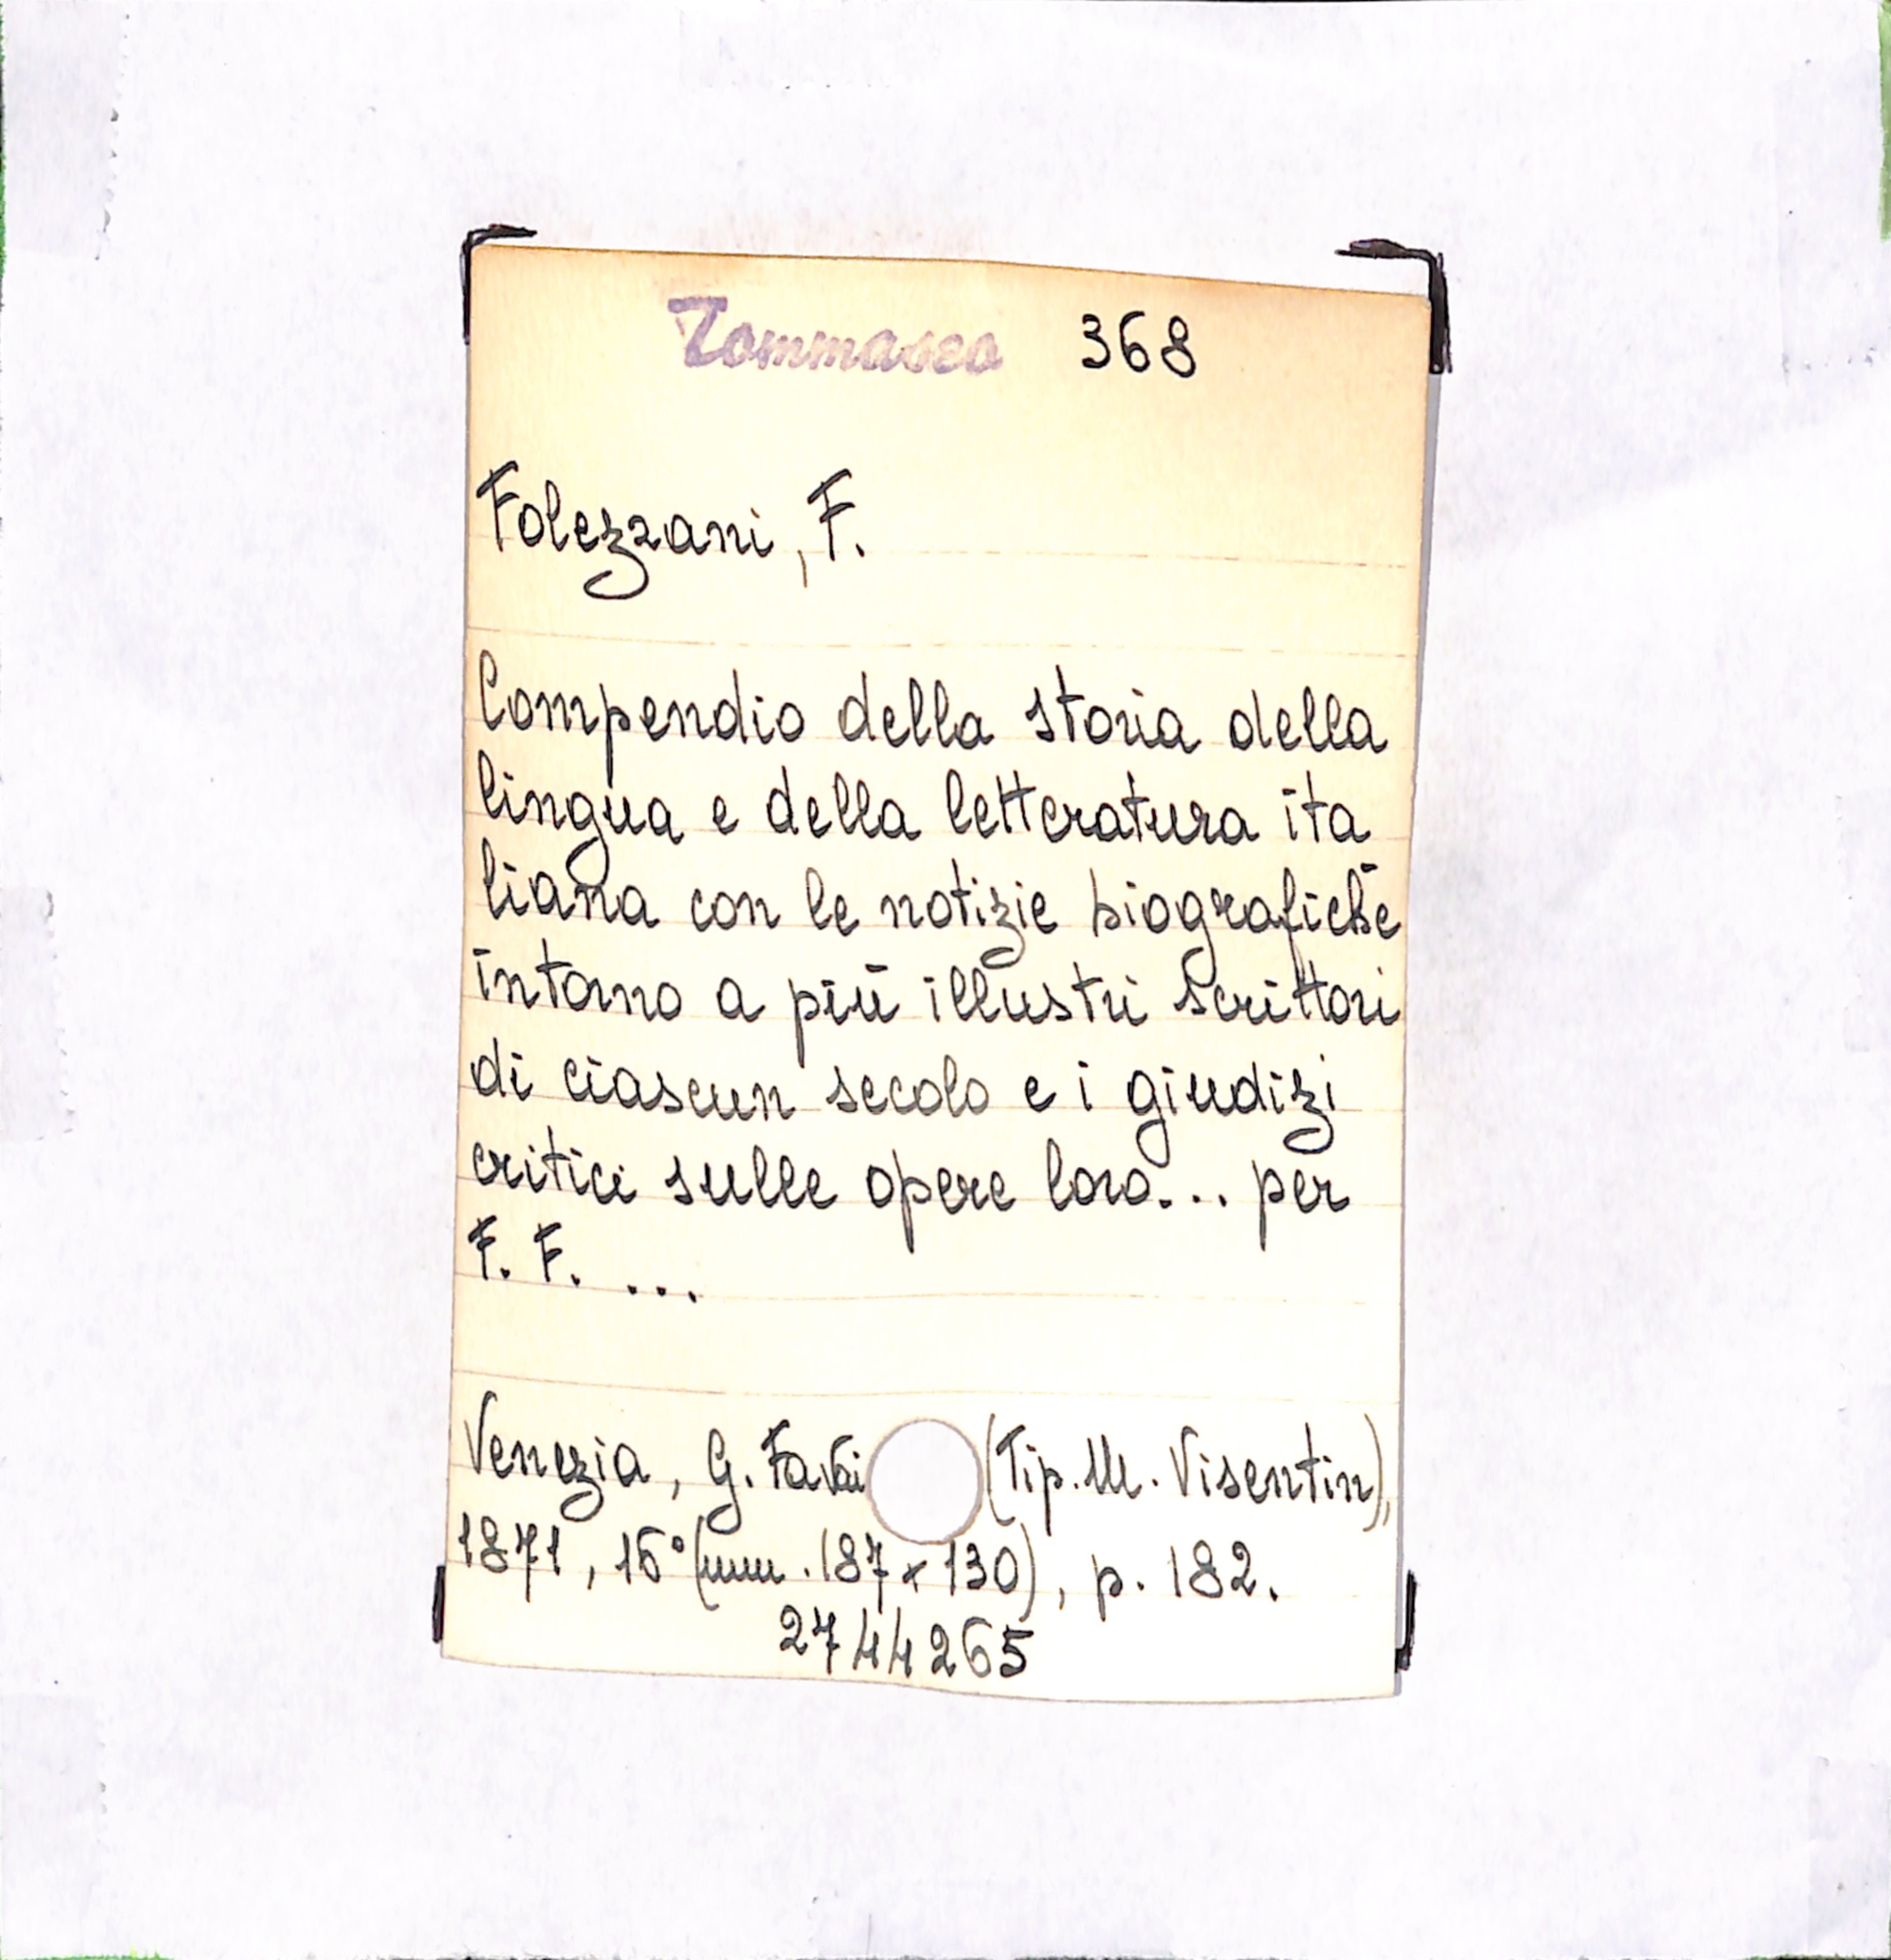 Tommaseo 368
Folezzani, F.
Compendio della storia della
lingua e della letteratura ita
liana con le notizie biografiche
intorno a più illustri scrittori
di ciascun secolo e i giudizi
critici sulle opere loro... per
F. F. ...
Venezia, G. Favai (Tip. M. Visentin),
1871, 16° (mm. 187 x 130), p. 182.
2744265